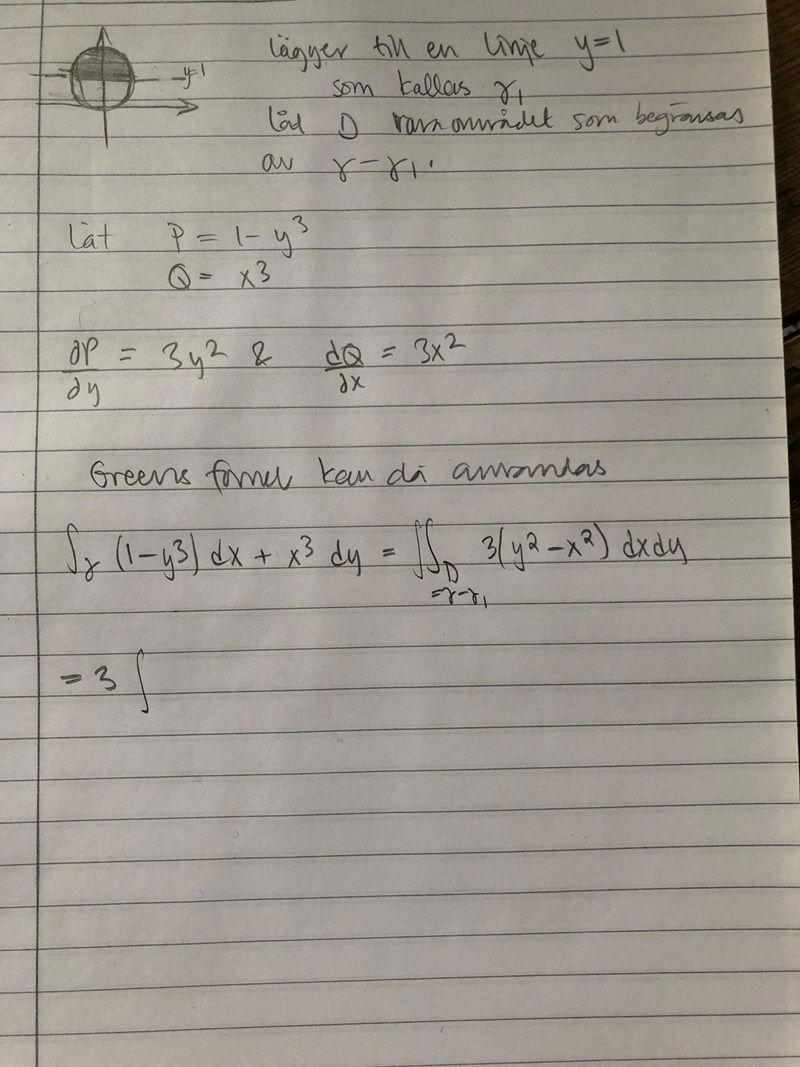 lägger till en linje y=1
som kallas γ₁
y=1
Låt D vara området som begränsas
av γ-γ₁.
Låt P = 1-y³
Q = x³
∂P/∂y = 3y² & dQ/∂x = 3x²
Greens formel kan då användas
∫γ (1-y³) dx + x³ dy = ∬D 3(y²-x²) dxdy
=γ-γ₁
= 3 ∫